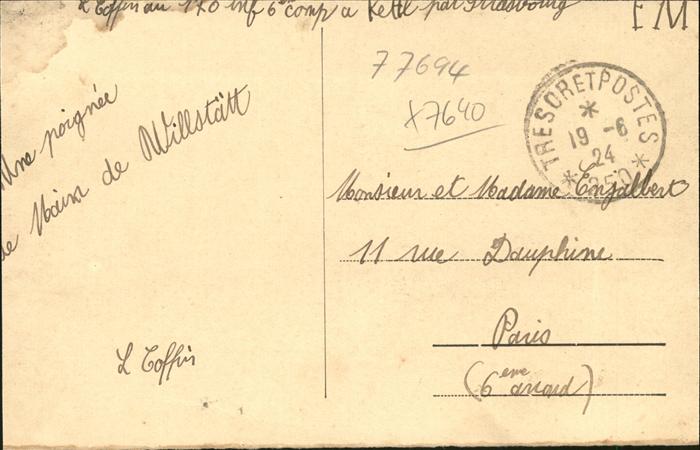 L Toffin au 170 inf 6e comp a Kehl par Strasbourg
FM
Une poignée
de Main de Willstätt
L Toffin
77694
X7640
TRESOR ET POSTES
19 -6
24
*
Monsieur et Madame Enjalbert
11 rue Dauphine
Paris
(6eme arrond)